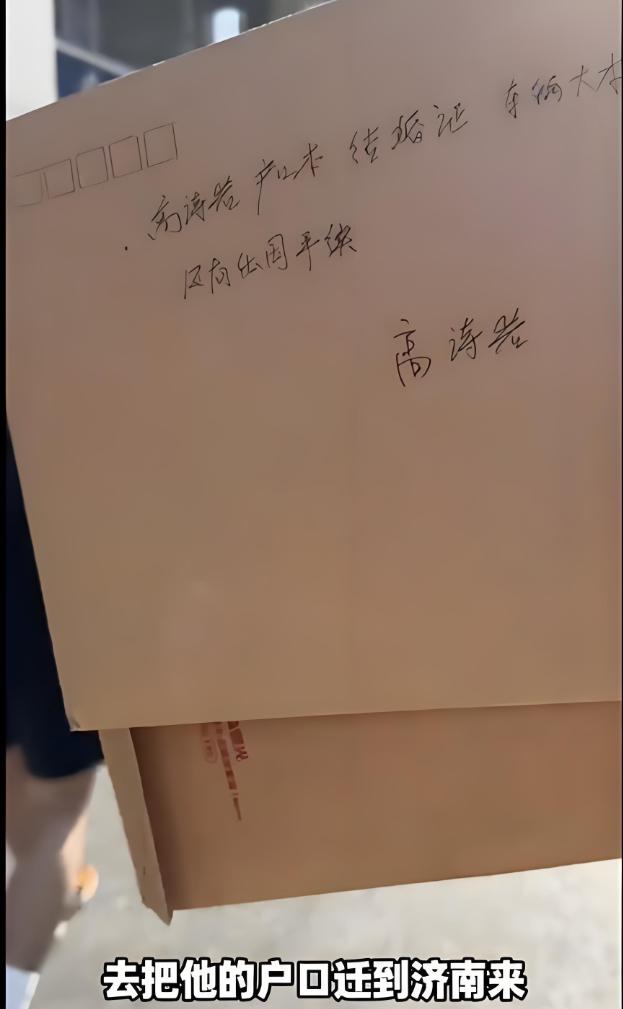 高诗岩 户口本 结婚证 车辆大本
还有出国手续
高诗岩
去把他的户口迁到济南来